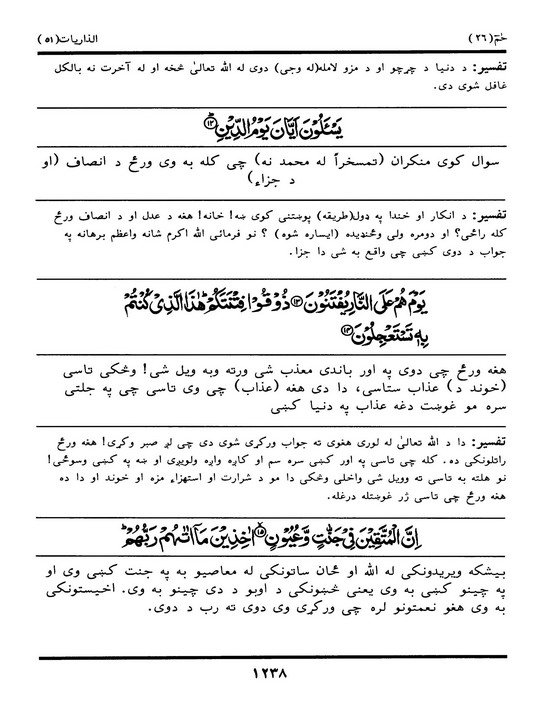 حٰمٓ(٢٦)
الذاريات(٥١)
تفسير: د دنيا د چړچو او د مزو لامله(له وجې) دوی له الله تعالیٰ څخه او له آخرت نه بالکل
غافل شوی دی.
يَسْـَٔلُوْنَ اَيَّانَ يَوْمُ الدِّيْنِ ۝١٢
سوال کوی منکران (تمسخراً له محمد نه) چی کله به وی ورځ د انصاف (او
د جزاء)
تفسير: د انکار او خندا په ډول(طريقه) پوښتنی کوی ښه! خانه! هغه د عدل او د انصاف ورځ
کله راځی؟ او دومره ولی وځنډيده (ايساره شوه) ؟ نو فرمائی الله اکرم شانه واعظم برهانه په
جواب د دوی کښی چی واقع به شی دا جزا.
يَوْمَ هُمْ عَلَى النَّارِ يُفْتَنُوْنَ ۝١٣ ذُوْقُوْا فِتْنَتَكُمْ ؕ هٰذَا الَّذِىْ كُنْتُمْ
بِهٖ تَسْتَعْجِلُوْنَ ۝١٤
هغه ورځ چی دوی په اور باندی معذب شی ورته وبه ويل شی! وڅکی تاسی
(خوند د) عذاب ستاسی، دا دی هغه (عذاب) چی وی تاسی چی په جلتی
سره مو غوښت دغه عذاب په دنيا کښی
تفسير: دا د الله تعالیٰ له لوری هغوی ته جواب ورکړی شوی دی چی لږ صبر وکړی! هغه ورځ
راتلونکی ده. کله چی تاسی په اور کښی سره سم او کاږه واړه ولويږی او ښه په کښی وسوځی!
نو هلته به تاسی ته وويل شی واخلی وڅکی دا مو د شرارت او استهزاء مزه او خوند او دا ده
هغه ورځ چی تاسی ژر غوښتله درغله.
اِنَّ الْمُتَّقِيْنَ فِىْ جَنّٰتٍ وَّعُيُوْنٍ ۝١٥ اٰخِذِيْنَ مَاۤ اٰتٰىهُمْ رَبُّهُمْ ؕ
بيشکه ويريدونکی له الله او ځان ساتونکی له معاصيو به په جنت کښی وی او
په چينو کښی به وی يعنی څښونکی د اوبو د دی چينو به وی. اخيستونکی
به وی هغو نعمتونو لره چی ورکړی وی دوی ته رب د دوی.
١٢٣٨